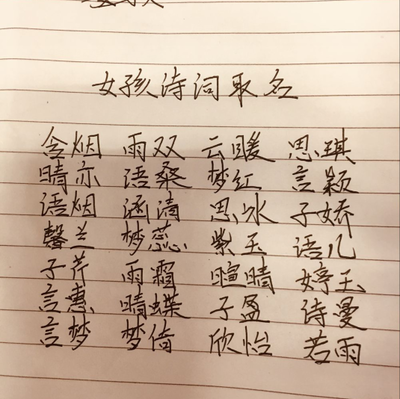 女孩诗词取名
含烟 雨双 云暖 思琪
晴亦 语桑 梦红 言颖
语烟 涵清 思冰 子娇
馨兰 梦蕊 紫玉 语儿
子芹 雨霜 暄晴 婷玉
言惠 晴蝶 子盈 诗曼
言梦 梦倚 欣怡 若雨